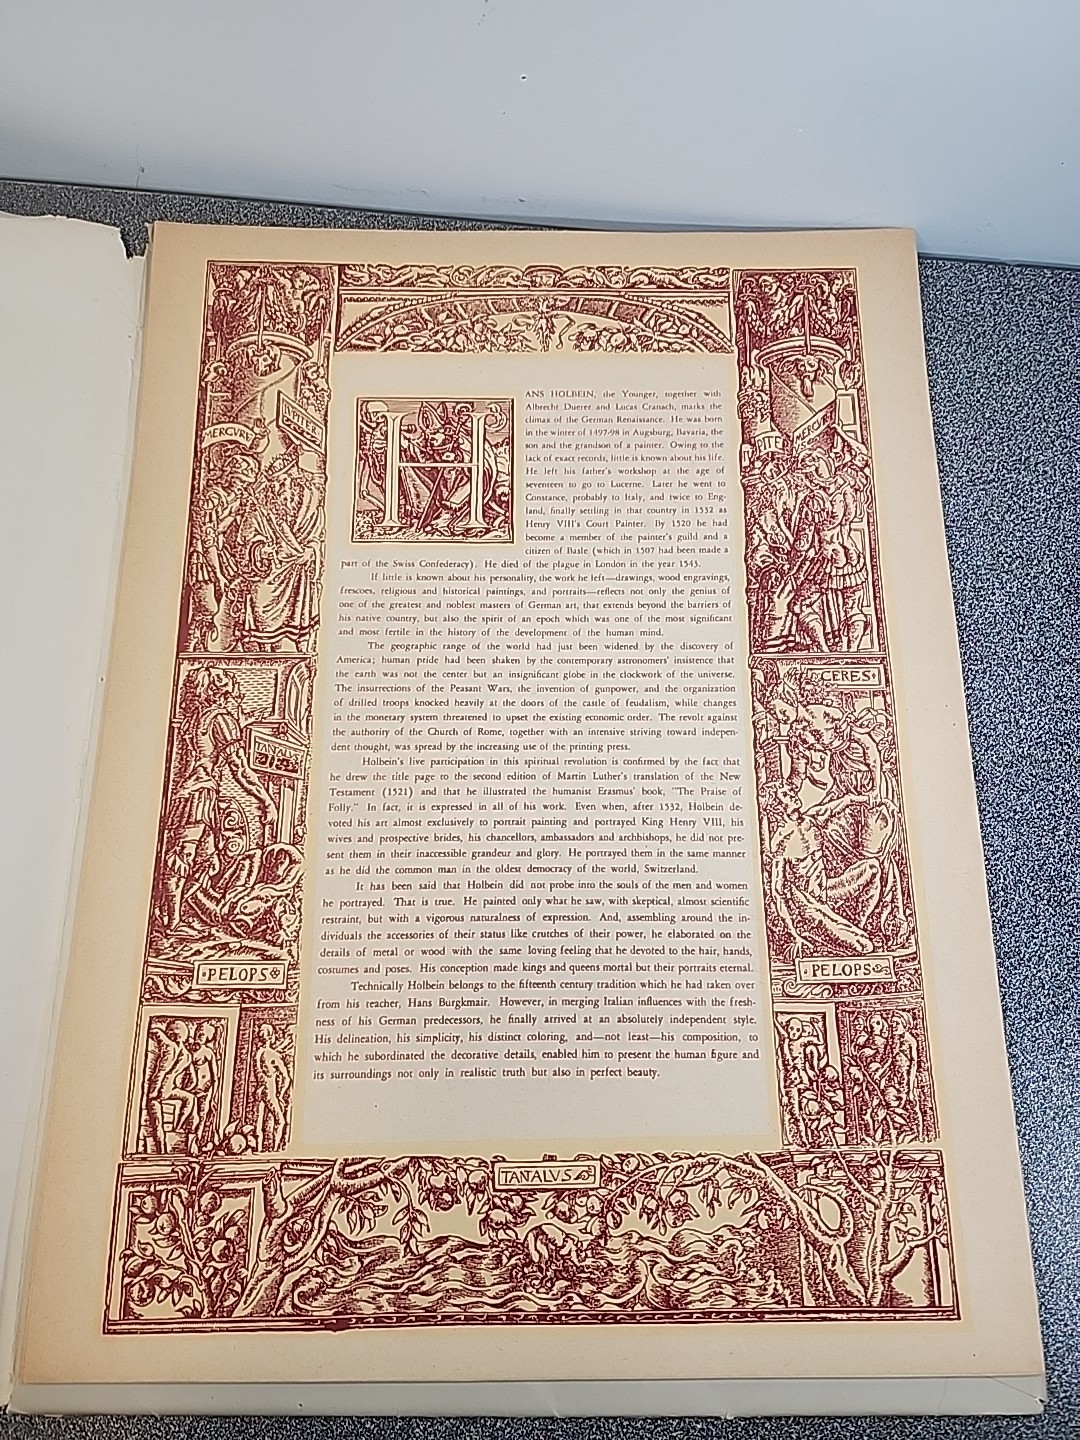 MERCVRE
IVPITER
TANTALVS
PELOPS
H
ANS HOLBEIN, the Younger, together with
Albrecht Duerer and Lucas Cranach, marks the
climax of the German Renaissance. He was born
in the winter of 1497-98 in Augsburg, Bavaria, the
son and the grandson of a painter. Owing to the
lack of exact records, little is known about his life.
He left his father's workshop at the age of
seventeen to go to Lucerne. Later he went to
Constance, probably to Italy, and twice to Eng-
land, finally settling in that country in 1532 as
Henry VIII's Court Painter. By 1520 he had
become a member of the painter's guild and a
citizen of Basle (which in 1507 had been made a
part of the Swiss Confederacy). He died of the plague in London in the year 1543.
If little is known about his personality, the work he left—drawings, wood engravings,
frescoes, religious and historical paintings, and portraits—reflects not only the genius of
one of the greatest and noblest masters of German art, that extends beyond the barriers of
his native country, but also the spirit of an epoch which was one of the most significant
and most fertile in the history of the development of the human mind.
The geographic range of the world had just been widened by the discovery of
America; human pride had been shaken by the contemporary astronomers' insistence that
the earth was not the center but an insignificant globe in the clockwork of the universe.
The insurrections of the Peasant Wars, the invention of gunpower, and the organization
of drilled troops knocked heavily at the doors of the castle of feudalism, while changes
in the monetary system threatened to upset the existing economic order. The revolt against
the authority of the Church of Rome, together with an intensive striving toward indepen-
dent thought, was spread by the increasing use of the printing press.
Holbein's live participation in this spiritual revolution is confirmed by the fact that
he drew the title page to the second edition of Martin Luther's translation of the New
Testament (1521) and that he illustrated the humanist Erasmus' book, "The Praise of
Folly." In fact, it is expressed in all of his work. Even when, after 1532, Holbein de-
voted his art almost exclusively to portrait painting and portrayed King Henry VIII, his
wives and prospective brides, his chancellors, ambassadors and archbishops, he did not pre-
sent them in their inaccessible grandeur and glory. He portrayed them in the same manner
as he did the common man in the oldest democracy of the world, Switzerland.
It has been said that Holbein did not probe into the souls of the men and women
he portrayed. That is true. He painted only what he saw, with skeptical, almost scientific
restraint, but with a vigorous naturalness of expression. And, assembling around the in-
dividuals the accessories of their status like crutches of their power, he elaborated on the
details of metal or wood with the same loving feeling that he devoted to the hair, hands,
costumes and poses. His conception made kings and queens mortal but their portraits eternal.
Technically Holbein belongs to the fifteenth century tradition which he had taken over
from his teacher, Hans Burgkmair. However, in merging Italian influences with the fresh-
ness of his German predecessors, he finally arrived at an absolutely independent style.
His delineation, his simplicity, his distinct coloring, and—not least—his composition, to
which he subordinated the decorative details, enabled him to present the human figure and
its surroundings not only in realistic truth but also in perfect beauty.
MERCVRE
CERES
PELOPS
TANALVS